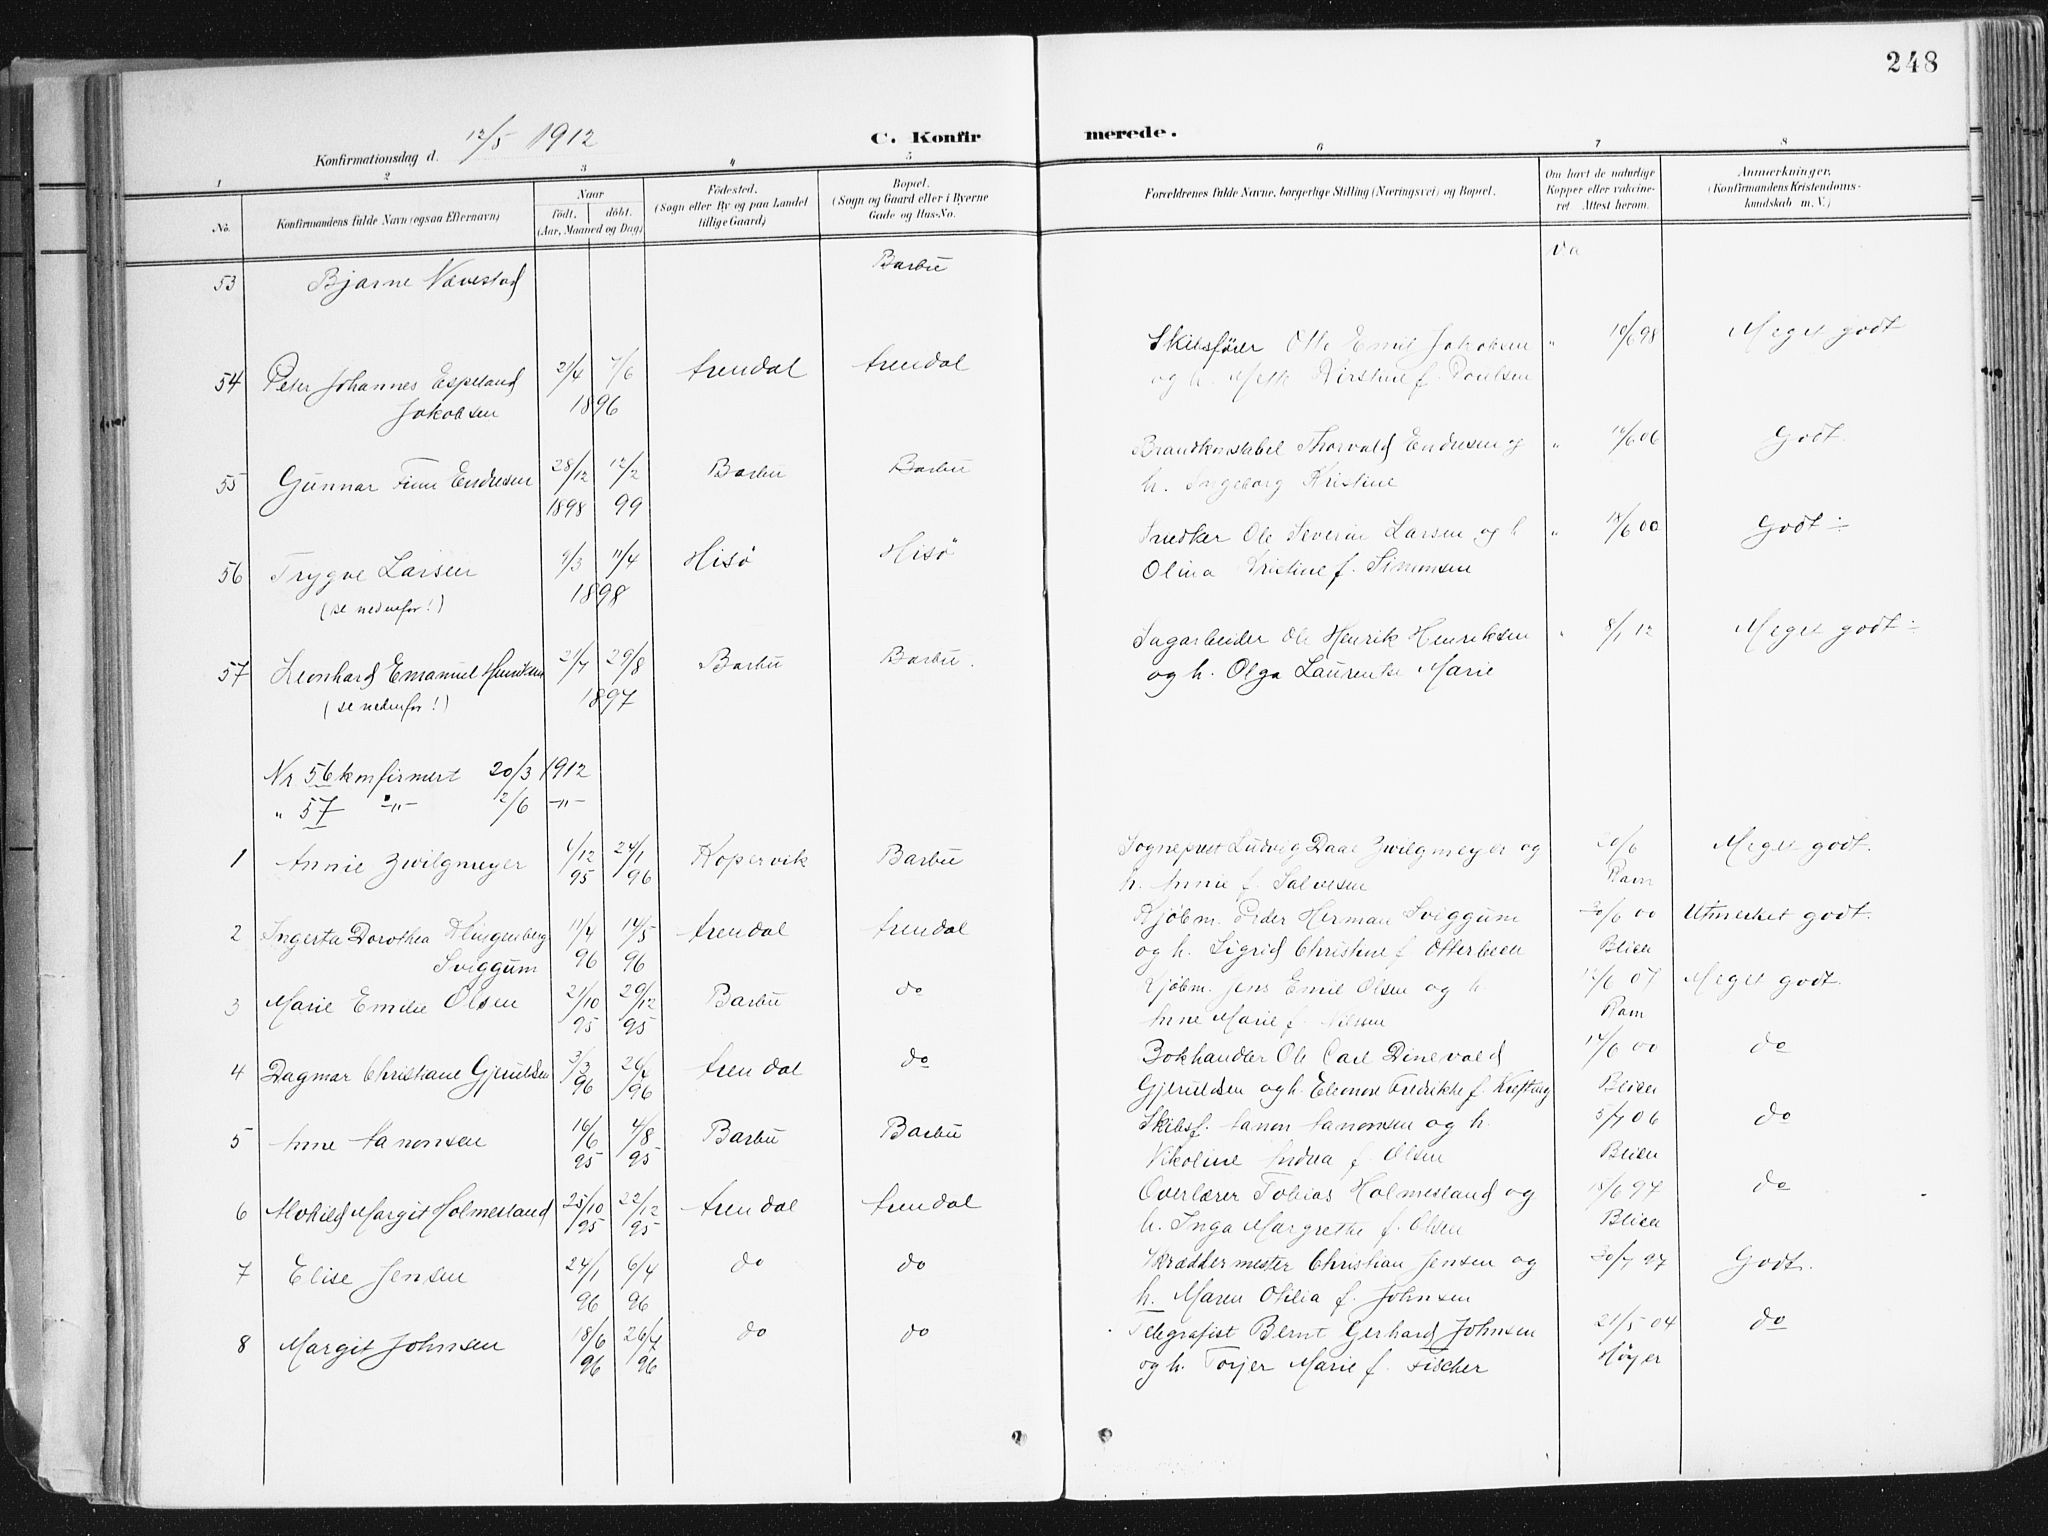 248
12/5 1912
Konfirmationsdag d.
C. Konfir
merede.
1 2 3 4 5 6 7 8
No.
Konfirmandens fulde Navn (ogsaa Efternavn)
Naar
født. døbt.
(Aar, Maaned og Dag)
Fødested.
(Sogn eller By og paa Landet
tillige Gaard)
Bopæl.
(Sogn og Gaard eller i Byerne
Gade og Hus-No.
Forældrenes fulde Navne, borgerlige Stilling (Næringsvei) og Bopæl.
Om havt de naturlige
Kopper eller vakcine-
ret Attest herom.
Anmærkninger,
(Konfirmandens Kristendoms-
kundskab m. V.)
53 Bjarne Nævestad Barbu
54 Peter Johannes Espeland 21/4 7/6 Arendal Arendal Skibsfører Otto Emil Jakobsen " 10/6 98 Meget godt
Jakobsen 1896 og h. Kirstine f. Poulsen
55 Gunnar Finn Endresen 28/12 12/2 Barbu Barbu Brandkonstabel Thorvald Endresen og " 06 Godt.
1898 99 h. Ingeborg Kristine
56 Trygve Larsen /3 11/4 Hisø Hisø Snedker Ole Severin Larsen og h " 14/6 00 Godt
(se nedenfor!) 1898 Olina Kristine f. Simonsen
57 Leonhard Emanuel Henriksen 21/7 29/8 Barbu Barbu. Sagarbeider Ole Henrik Henriksen " 8/1 12 Meget godt
(se nedenfor!) 1897 og h. Olga Laurentse Marie
Nr 56 konfirmert 20/3 1912
" 57 -"- 2/6 -"-
1 Annie Zwilgmeyer /12 24/1 Kopervik Barbu Sogneprest Ludvig Daae Zwilgmeyer og 20/6 Meget godt.
95 96 h. Annie f. Salvesen
2 Ingerta Dorothea Klingenberg 11/4 14/5 Arendal Arendal Kjøbm. Peder Herman Sviggum 30/6 00 Utmerket godt.
Sviggum 96 96 og h. Sigrid Christine f. Otterbeen
3 Marie Emilie Olsen 21/10 29/12 Barbu do Kjøbm. Jens Emil Olsen og h. 12/6 07 Meget godt.
95 95 Anne Marie f. Nilssen
4 Dagmar Christiane Gjeruldsen 3/3 Arendal do Bokhandler Ole Carl Dinevald 14/6 00 do
96 96 Gjeruldsen og h. Eleonore Fredrikke f. Krefting
5 Anne Aanonsen 16/6 4/8 Barbu Barbu Skibsf. Aanon Aanonsen og h. 5/7 06 do
95 95 Nikoline Andrea f. Olsen
6 Alvhild Margit Holmesland 25/10 22/12 Arendal Arendal Overlærer Tobias Holmesland og 18/6 97 do
95 95 h. Inga Margrethe f. Olsen
7 Elise Jensen 24/1 6/4 do do Skræddermester Christian Jensen og 30/7 97 Godt.
96 96 h. Maren Otilia f. Johnsen
8 Margit Johnsen 18/6 26/7 do do Telegrafist Bernt Gerhard Johnsen 21/5 04 do
96 96 og h. Torjer Marie f. Fischer Høyer